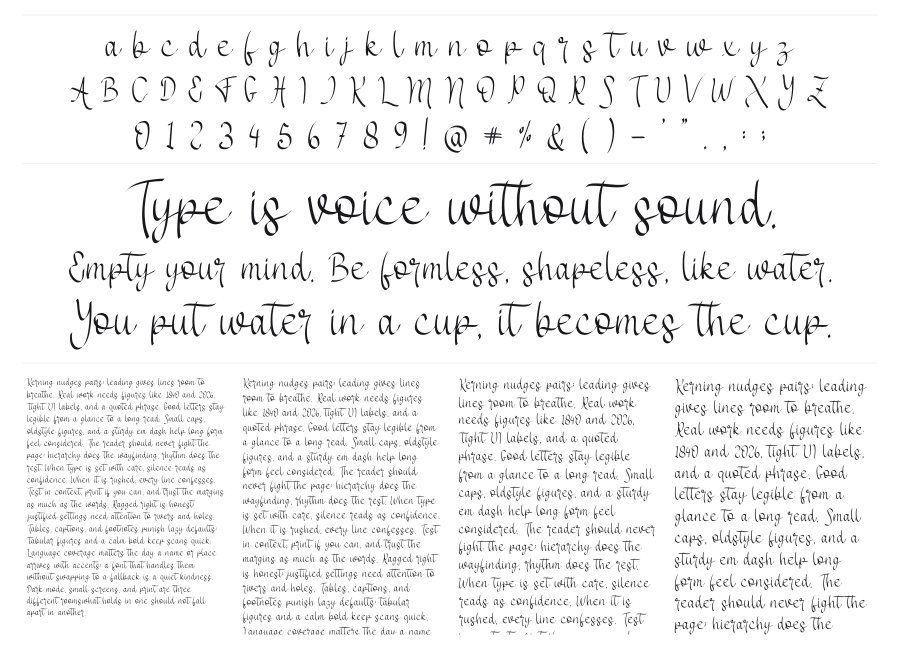 a b c d e f g h i j k l m n o p q r s t u v w x y z
A B C D E F G H I J K L M N O P Q R S T U V W X Y Z
0 1 2 3 4 5 6 7 8 9 ! @ # % & ( ) – ' " . , : ;
Type is voice without sound.
Empty your mind. Be formless, shapeless, like water.
You put water in a cup, it becomes the cup.
Kerning nudges pairs; leading gives lines room to
breathe. Real work needs figures like 1840 and 2026,
tight UI labels, and a quoted phrase. Good letters stay
legible from a glance to a long read. Small caps,
oldstyle figures, and a sturdy em dash help long form
feel considered. The reader should never fight the
page: hierarchy does the wayfinding, rhythm does the
rest. When type is set with care, silence reads as
confidence. When it is rushed, every line confesses.
Test in context, print if you can, and trust the margins
as much as the words. Ragged right is honest;
justified settings need attention to rivers and holes.
Tables, captions, and footnotes punish lazy defaults;
tabular figures and a calm bold keep scans quick.
Language coverage matters the day a name or place
arrives with accents; a font that handles them
without swapping to a fallback is a quiet kindness.
Dark mode, small screens, and print are three
different rooms: what holds in one should not fall
apart in another.
Kerning nudges pairs; leading gives lines
room to breathe. Real work needs figures
like 1840 and 2026, tight UI labels, and a
quoted phrase. Good letters stay legible from
a glance to a long read. Small caps, oldstyle
figures, and a sturdy em dash help long
form feel considered. The reader should
never fight the page: hierarchy does the
wayfinding, rhythm does the rest. When type
is set with care, silence reads as confidence.
When it is rushed, every line confesses. Test
in context, print if you can, and trust the
margins as much as the words. Ragged right
is honest; justified settings need attention to
rivers and holes. Tables, captions, and
footnotes punish lazy defaults; tabular
figures and a calm bold keep scans quick.
Language coverage matters the day a name
Kerning nudges pairs; leading gives
lines room to breathe. Real work
needs figures like 1840 and 2026,
tight UI labels, and a quoted
phrase. Good letters stay legible
from a glance to a long read. Small
caps, oldstyle figures, and a sturdy
em dash help long form feel
considered. The reader should never
fight the page: hierarchy does the
wayfinding, rhythm does the rest.
When type is set with care, silence
reads as confidence. When it is
rushed, every line confesses. Test
Kerning nudges pairs; leading
gives lines room to breathe.
Real work needs figures like
1840 and 2026, tight UI labels,
and a quoted phrase. Good
letters stay legible from a
glance to a long read. Small
caps, oldstyle figures, and a
sturdy em dash help long
form feel considered. The
reader should never fight the
page: hierarchy does the